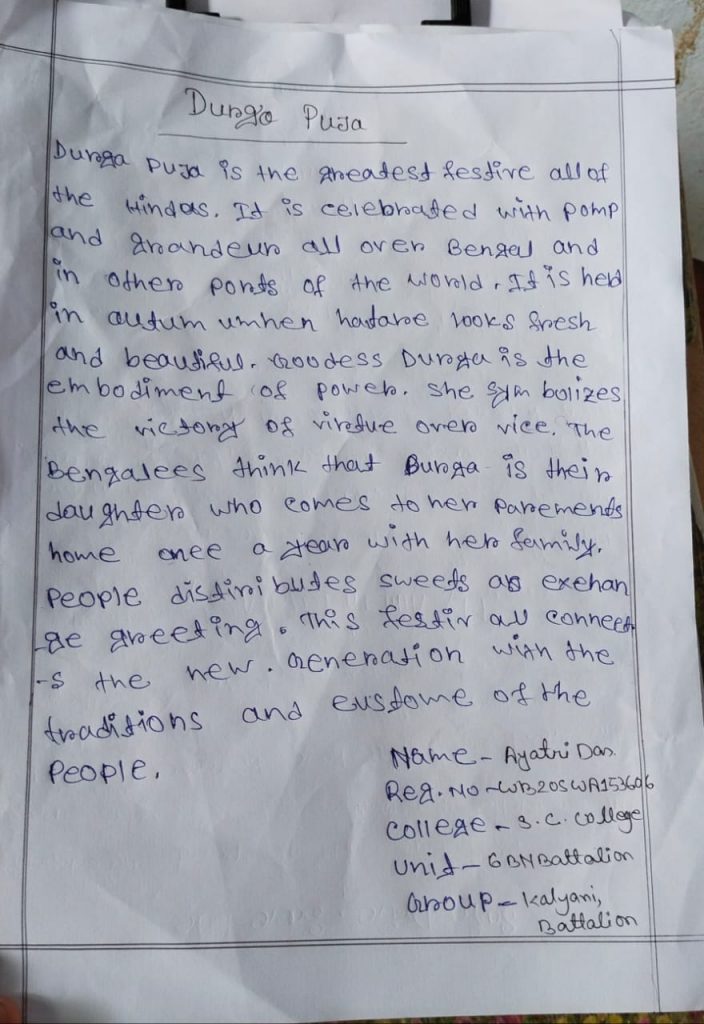 Durga Puja
Durga puja is the greatest festive all of
the Hindas. It is celebrated with pomp
and grandeur all over Bengal and
in other ports of the world. It is held
in autum umhen hatare looks fresh
and beautiful. Goodess Durga is the
embodiment of power. She Sym bolizes
the victory of virtue over vice. The
Bengalees think that Durga is their
daughter who comes to her parements
home once a year with her family.
People distiri butes sweets as exchan
-ge greeting. This festiv all connect
-s the new. Generation with the
traditions and custome of the
People.
Name - Ayatri Das.
Reg. No - WB20SWA153606
College - S.C. College
Unit - 6BN Battalion
Group - Kalyani,
Battalion